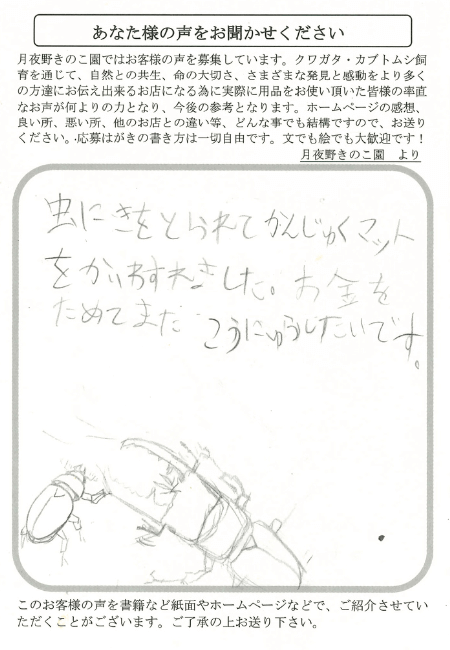 あなた様の声をお聞かせください
月夜野きのこ園ではお客様の声を募集しています。クワガタ・カブトムシ飼
育を通じて、自然との共生、命の大切さ、さまざまな発見と感動をより多く
の方達にお伝え出来るお店になる為に実際に用品をお使い頂いた皆様の率直
なお声が何よりの力となり、今後の参考となります。ホームページの感想、
良い所、悪い所、他のお店との違い等、どんな事でも結構ですので、お送り
ください。応募はがきの書き方は一切自由です。文でも絵でも大歓迎です！
月夜野きのこ園　より
虫にきをとられてかんじゅくマット
をかいわすれました。お金を
ためてまた こうにゅうしたいです。
このお客様の声を書籍など紙面やホームページなどで、ご紹介させてい
ただくことがございます。ご了承の上お送り下さい。